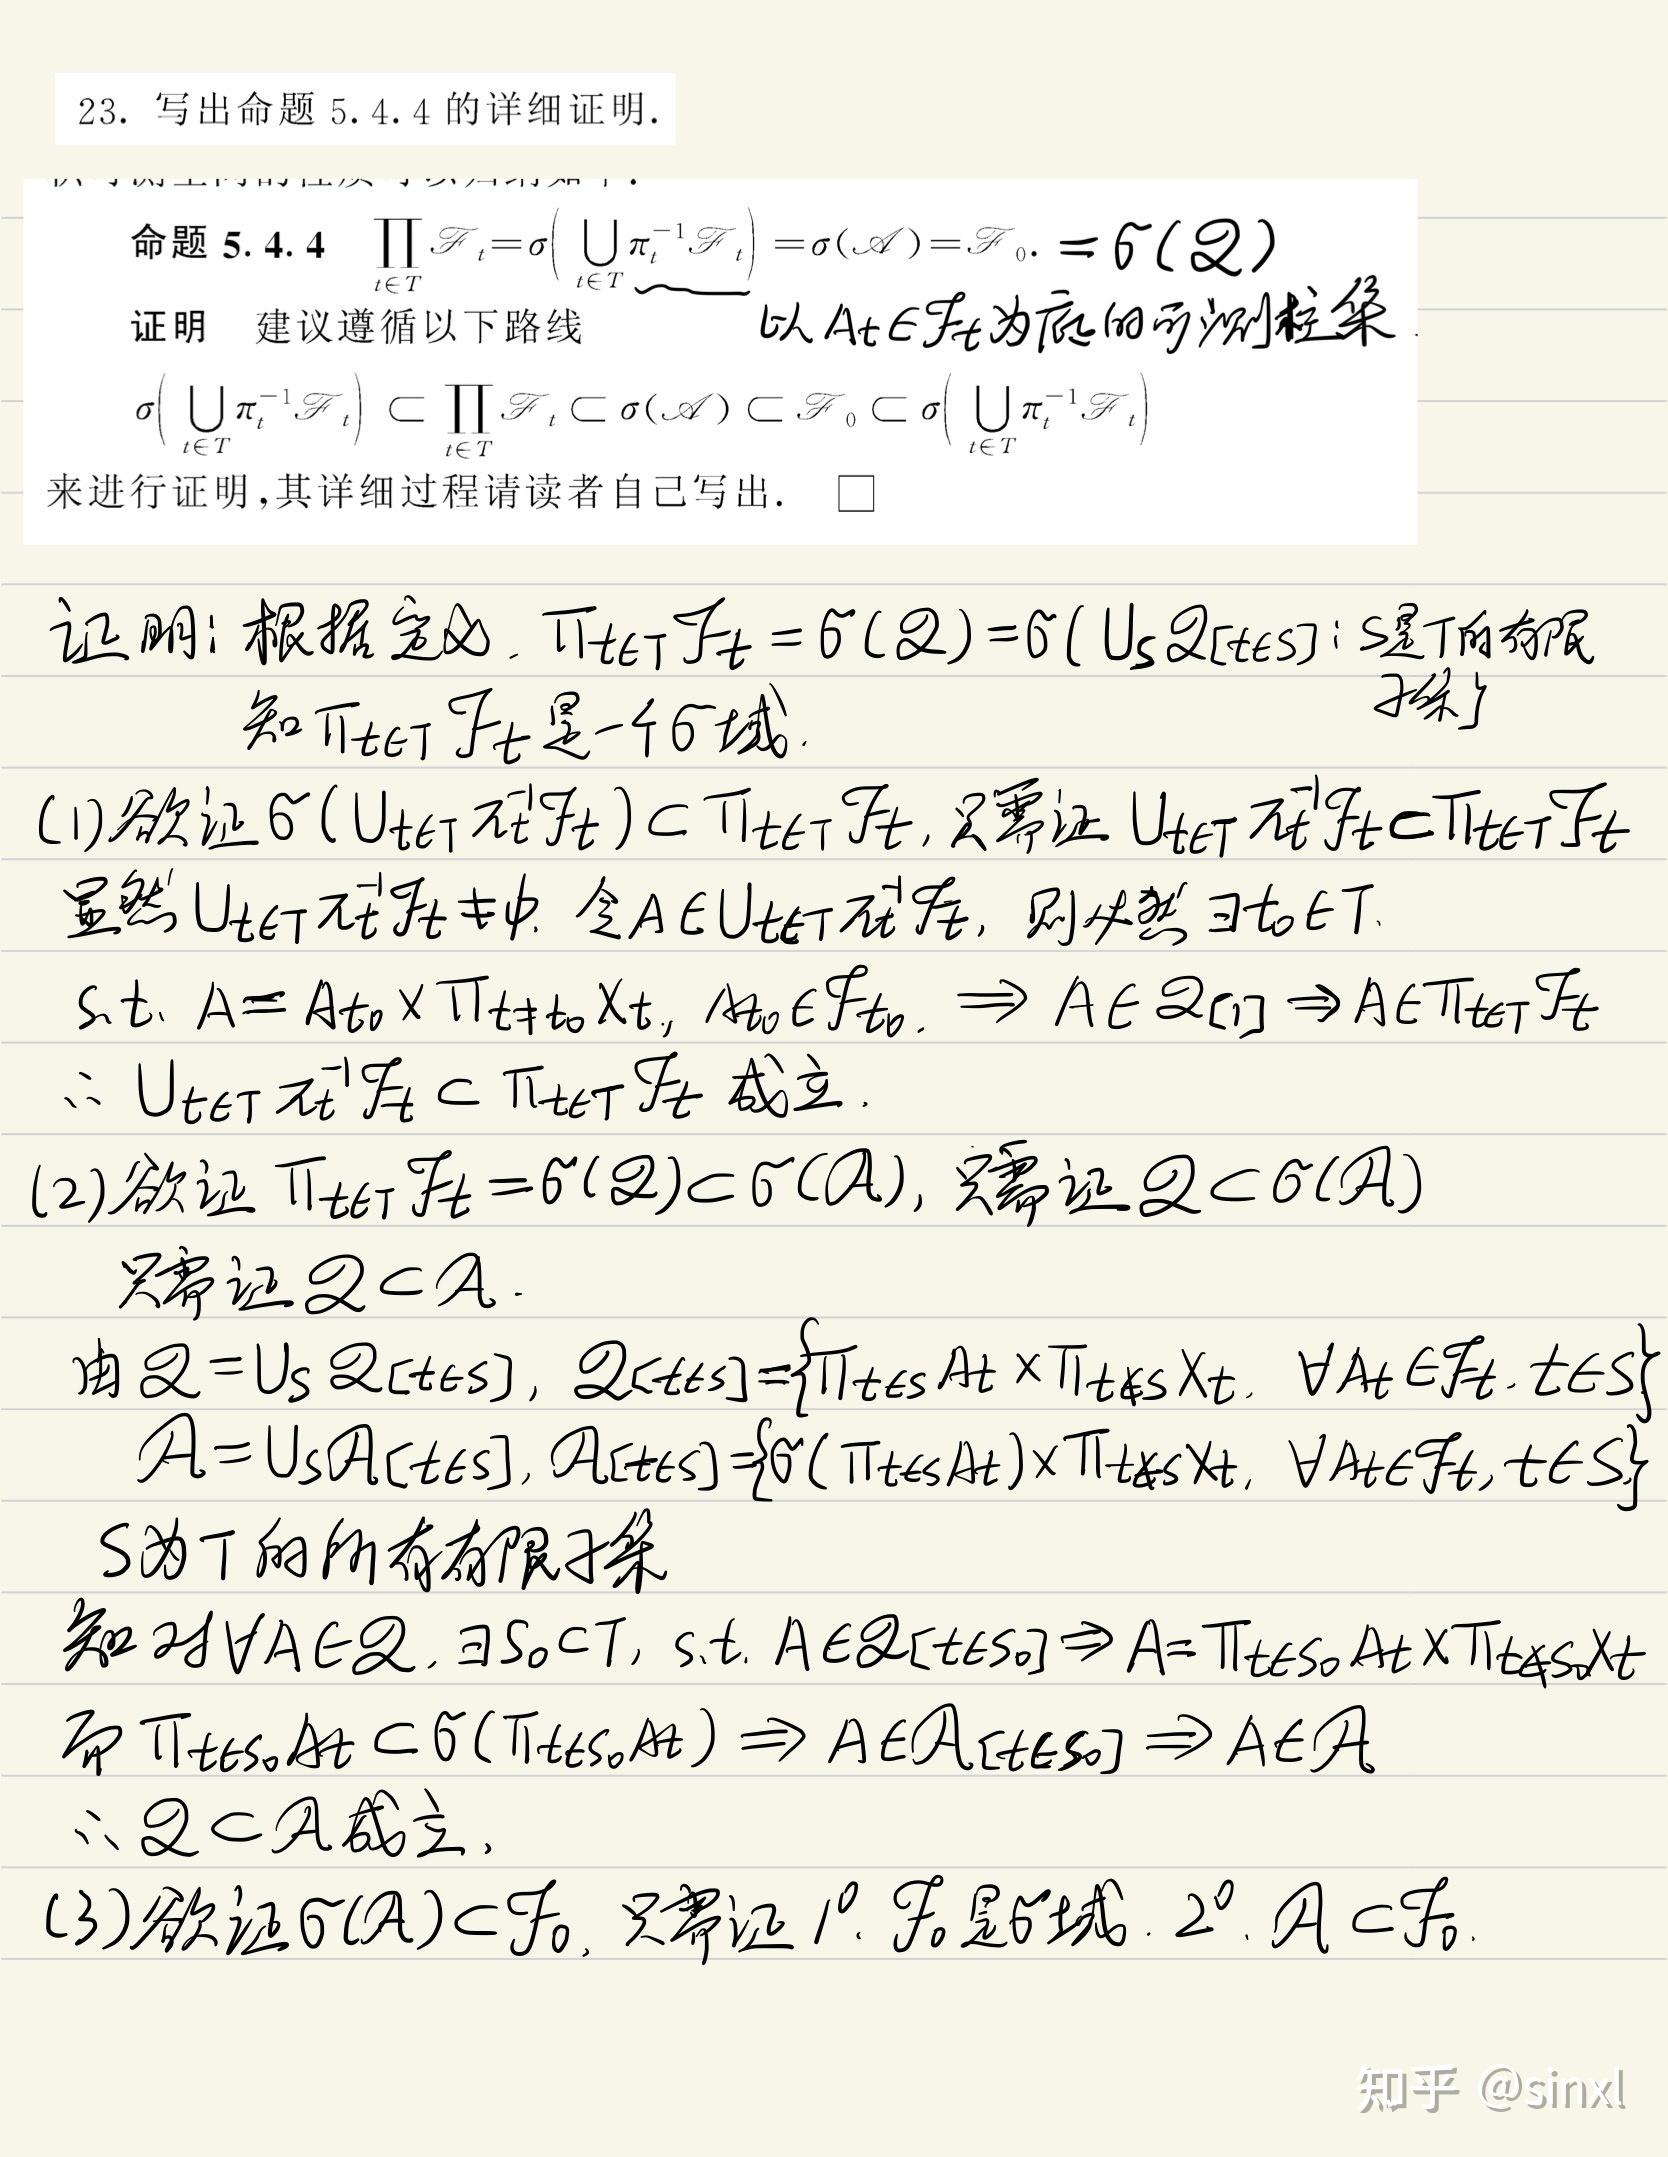 23. 写出命题 5.4.4 的详细证明.
命题 5.4.4 ∏_{t∈T} ℱ_t = σ( ⋃_{t∈T} π_t^{-1} ℱ_t ) = σ(𝒜) = ℱ_0. = σ(𝒬)
证明 建议遵循以下路线 以 A_t∈ℱ_t 为底的可测柱集
σ( ⋃_{t∈T} π_t^{-1} ℱ_t ) ⊂ ∏_{t∈T} ℱ_t ⊂ σ(𝒜) ⊂ ℱ_0 ⊂ σ( ⋃_{t∈T} π_t^{-1} ℱ_t )
来进行证明,其详细过程请读者自己写出. □
证明: 根据定义. ∏_{t∈T} ℱ_t = σ(𝒬) = σ( ∪_S 𝒬_{[t∈S]} : S是T的有限
子集}
知 ∏_{t∈T} ℱ_t 是一个σ域.
(1) 欲证 σ(∪_{t∈T} π_t^{-1} ℱ_t) ⊂ ∏_{t∈T} ℱ_t, 只需证 ∪_{t∈T} π_t^{-1} ℱ_t ⊂ ∏_{t∈T} ℱ_t
显然 ∪_{t∈T} π_t^{-1} ℱ_t ≠ φ. 令 A∈∪_{t∈T} π_t^{-1} ℱ_t, 则必然 ∃t_0∈T.
s.t. A = A_{t_0} × ∏_{t≠t_0} X_t, A_{t_0}∈ℱ_{t_0}. ⇒ A∈𝒬_{[1]} ⇒ A∈∏_{t∈T} ℱ_t
∴ ∪_{t∈T} π_t^{-1} ℱ_t ⊂ ∏_{t∈T} ℱ_t 成立.
(2) 欲证 ∏_{t∈T} ℱ_t = σ(𝒬) ⊂ σ(𝒜), 只需证 𝒬 ⊂ σ(𝒜)
只需证 𝒬 ⊂ 𝒜.
由 𝒬 = ∪_S 𝒬_{[t∈S]}, 𝒬_{[t∈S]} = {∏_{t∈S} A_t × ∏_{t∉S} X_t. ∀A_t∈ℱ_t. t∈S}
𝒜 = ∪_S 𝒜_{[t∈S]}, 𝒜_{[t∈S]} = {σ(∏_{t∈S} A_t) × ∏_{t∉S} X_t, ∀A_t∈ℱ_t, t∈S}
S为T的所有有限子集
知对∀A∈𝒬, ∃S_0⊂T, s.t. A∈𝒬_{[t∈S_0]} ⇒ A = ∏_{t∈S_0} A_t × ∏_{t∉S_0} X_t
而 ∏_{t∈S_0} A_t ⊂ σ(∏_{t∈S_0} A_t) ⇒ A∈𝒜_{[t∈S_0]} ⇒ A∈𝒜
∴ 𝒬 ⊂ 𝒜 成立.
(3) 欲证 σ(𝒜) ⊂ ℱ_0, 只需证 1°. ℱ_0 是σ域. 2°. 𝒜 ⊂ ℱ_0.
知乎 @sinxl